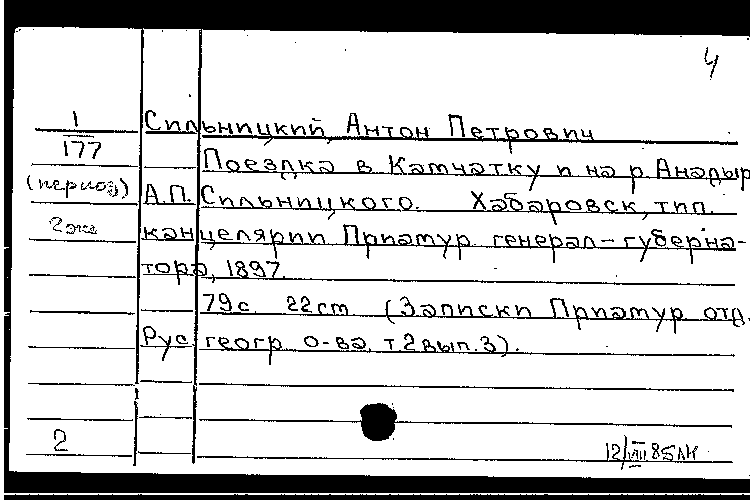 4
1 Сильницкий, Антон Петрович
177 Поездка в Камчатку и на р. Анадырь
(период) А.П. Сильницкого. Хабаровск, тип.
2экз канцелярии Приамур генерал-губерна-
тора, 1897.
79с. 22cm (Записки Приамур отд.
Рус геогр о-ва, т.2 вып.3).
2
12/VIII 85